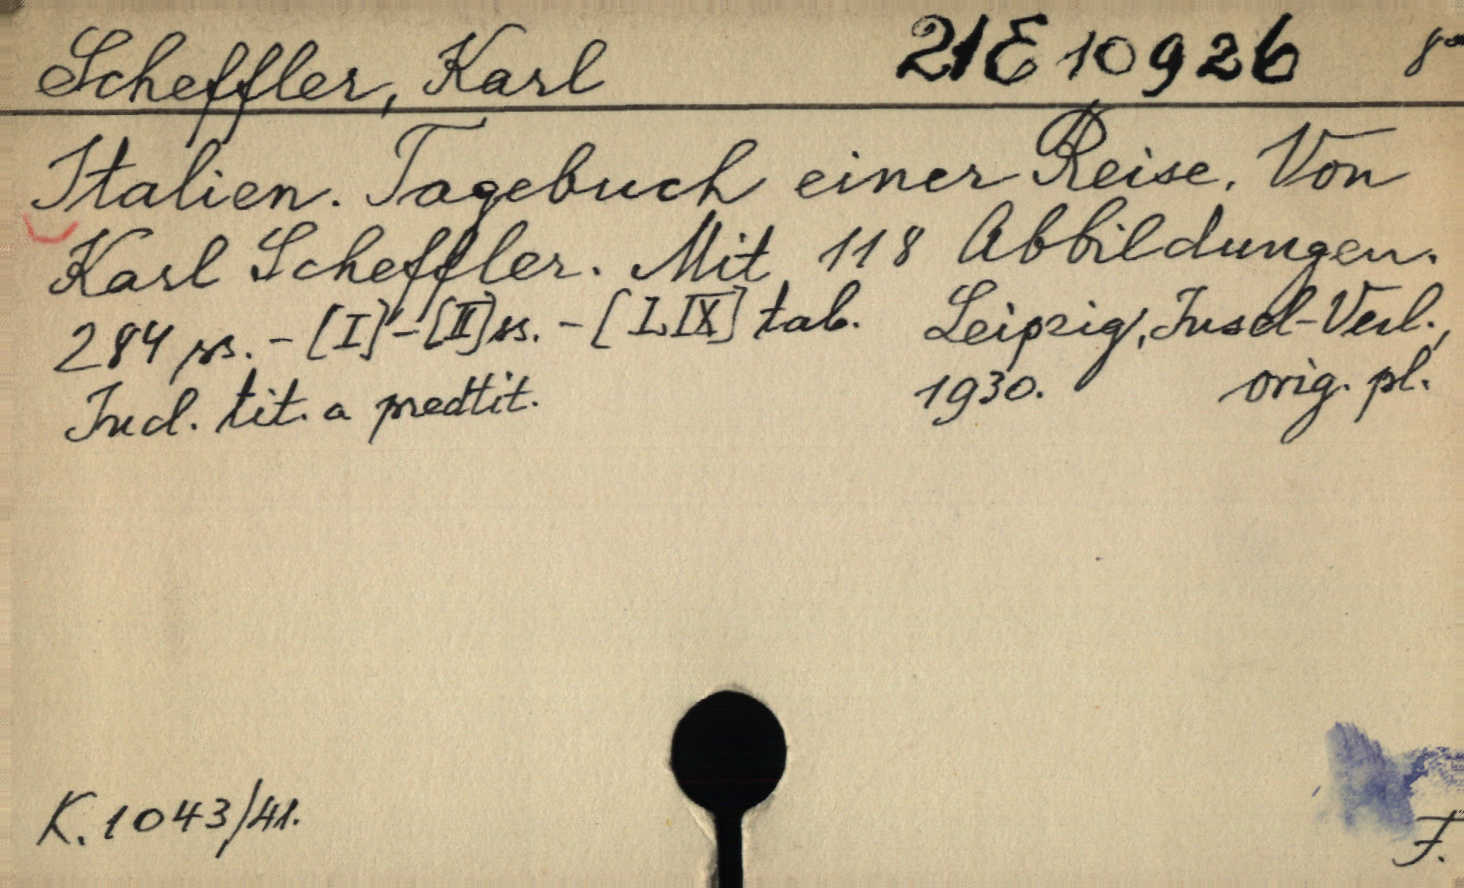 Scheffler, Karl 21 E 10926 8°
Italien. Tagebuch einer Reise. Von
Karl Scheffler. Mit 118 Abbildungen.
284 ss. - [I] - [II] ss. - [LIX] tab. Leipzig, Insel-Verl.,
Incl. tit. a predtit. 1930. orig. pl.
K. 1043/41. F.